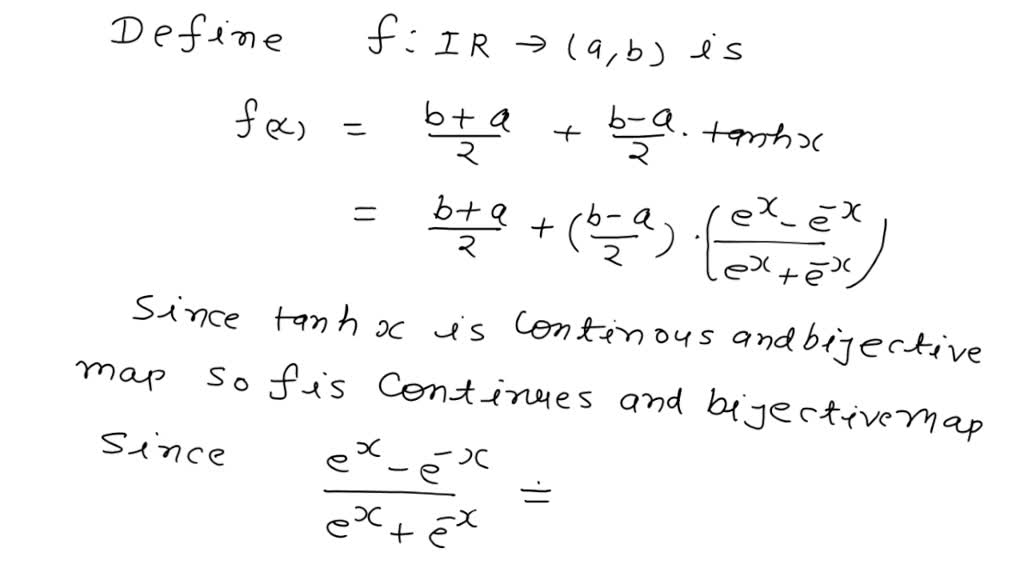 Define f: IR → (a,b) is
f(x) = b+a/2 + b-a/2 . tanhx
= b+a/2 + (b-a/2) . (e^x - e^-x / e^x + e^-x)
Since tanh x is Continous and bijective
map so f is Continues and bijective map
Since e^x - e^-x / e^x + e^-x =